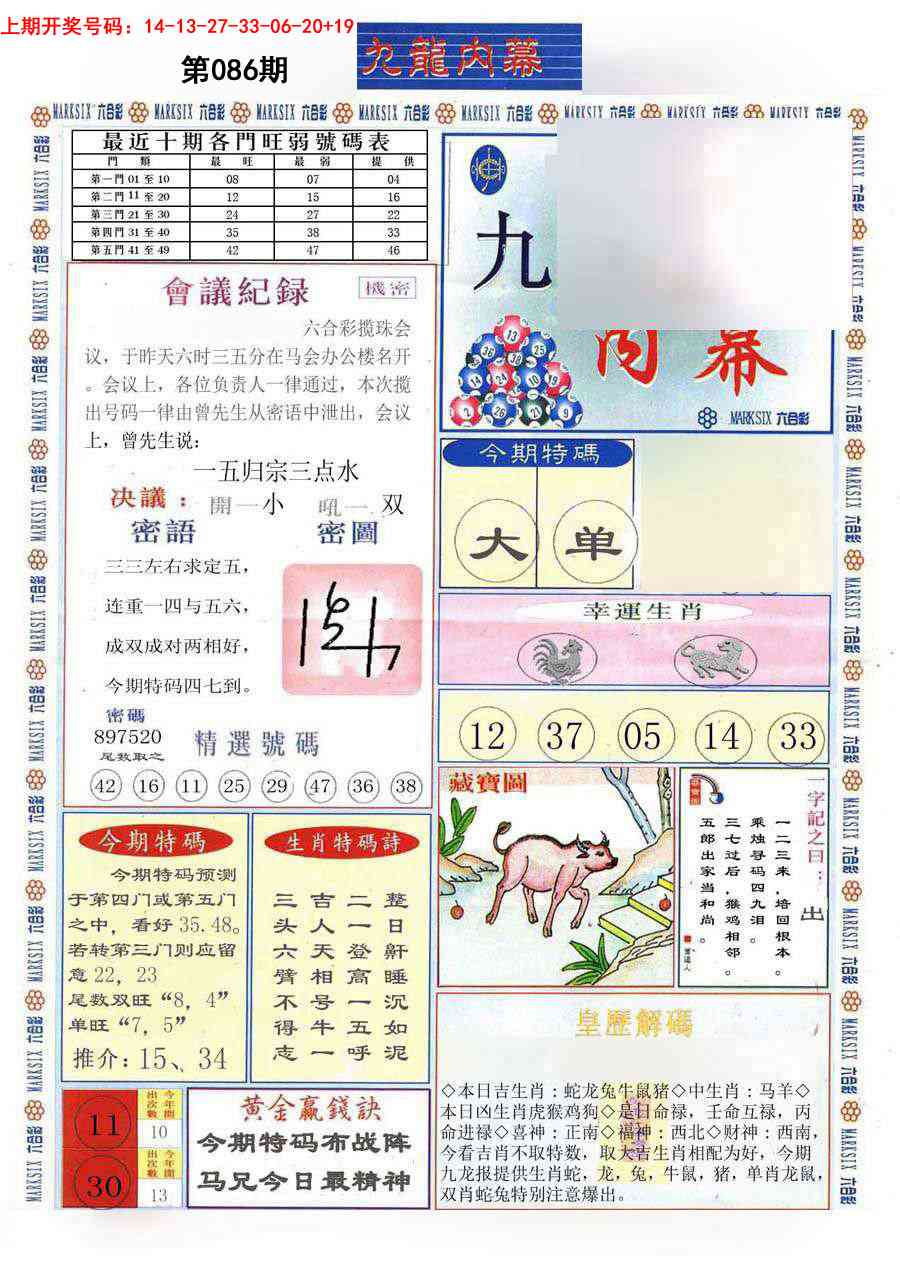 上期开奖号码：14-13-27-33-06-20+19
第086期
九龍内幕
MARKSIX 六合彩
最近十期各門旺弱號碼表
門 類 最 旺 最 弱 提 供
第一門 01 至 10 08 07 04
第二門 11 至 20 12 15 16
第三門 21 至 30 24 27 22
第四門 31 至 40 35 38 33
第五門 41 至 49 42 47 46
會議紀録
機密
六合彩攬珠会
议，于昨天六时三五分在马会办公楼名开
。会议上，各位负责人一律通过，本次攬
出号码一律由曾先生从密语中泄出，会议
上，曾先生说：
一五归宗三点水
决議：開一小 吼一双
密語
三三左右求定五，
连重一四与五六，
成双成对两相好，
今期特码四七到。
密圖
密碼
897520
尾数取之
精選號碼
42 16 11 25 29 47 36 38
九
内幕
13
36 38 25
14 24 10 19
2 26 21 9
MARKSIX 六合彩
今期特碼
大 单
幸運生肖
12 37 05 14 33
藏寶圖
一字記之曰：出
一二三来，培回根本。
乘烛寻码四九泪。
三七过后，猴鸡相邻。
五郎出家当和尚。
今期特碼
今期特码预测
于第四门或第五门
之中，看好35.48。
若转第三门则应留
意22，23
尾数双旺“8，4”
单旺“7，5”
推介：15、34
生肖特碼詩
整日鼾睡沉如泥
二一登高一五呼
吉人天相号牛一
三头六臂不得志
11
今年開出次數
10
30
今年開出次數
13
黄金赢錢訣
今期特码布战阵
马兄今日最精神
皇歷解碼
◇本日吉生肖：蛇龙兔牛鼠猪◇中生肖：马羊◇
本日凶生肖虎猴鸡狗◇是日命禄，壬命互禄，丙
命进禄◇喜神：正南◇福神：西北◇财神：西南，
今看吉肖不取特数，取大吉生肖相配为好，今期
九龙报提供生肖蛇，龙，兔，牛鼠，猪，单肖龙鼠，
双肖蛇兔特别注意爆出。